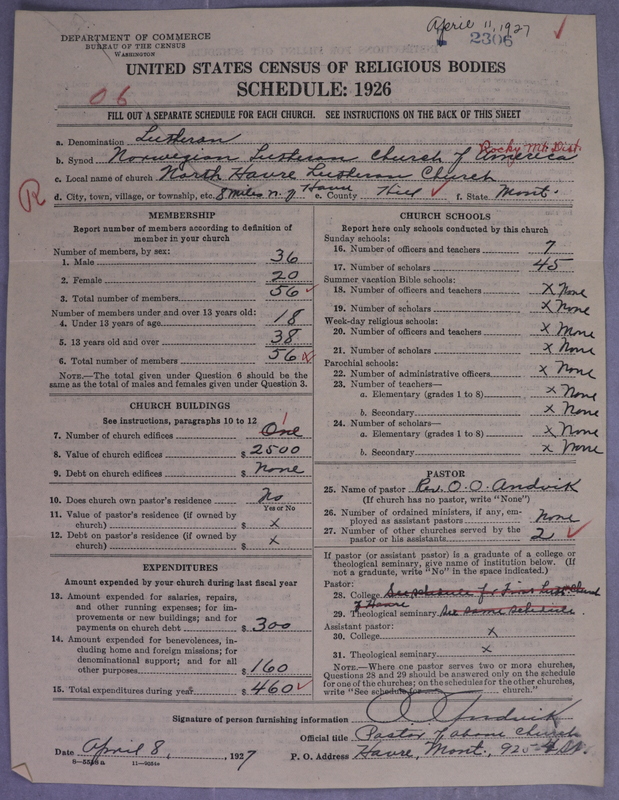 April 11, 1927
2306
DEPARTMENT OF COMMERCE
BUREAU OF THE CENSUS
WASHINGTON
UNITED STATES CENSUS OF RELIGIOUS BODIES
SCHEDULE: 1926
06
FILL OUT A SEPARATE SCHEDULE FOR EACH CHURCH. SEE INSTRUCTIONS ON THE BACK OF THIS SHEET
R
a. Denomination Lutheran
Rocky Mt. Dist.
b. Synod Norwegian Lutheran Church of America
c. Local name of church North Havre Lutheran Church
d. City, town, village, or township, etc. 8 miles n. of Havre e. County Hill f. State Mont.
MEMBERSHIP
Report number of members according to definition of
member in your church
Number of members, by sex:
1. Male 36
2. Female 20
3. Total number of members 56
Number of members under and over 13 years old:
4. Under 13 years of age 18
5. 13 years old and over 38
6. Total number of members 56
NOTE.—The total given under Question 6 should be
the same as the total of males and females given under Question 3.
CHURCH BUILDINGS
See instructions, paragraphs 10 to 12
7. Number of church edifices One 1
8. Value of church edifices $ 2500
9. Debt on church edifices $ None
10. Does church own pastor's residence No
Yes or No
11. Value of pastor's residence (if owned by
church) $ x
12. Debt on pastor's residence (if owned by
church) $ x
EXPENDITURES
Amount expended by your church during last fiscal year
13. Amount expended for salaries, repairs,
and other running expenses; for im-
provements or new buildings; and for
payments on church debt $ 300
14. Amount expended for benevolences, in-
cluding home and foreign missions; for
denominational support; and for all
other purposes $ 160
15. Total expenditures during year $ 460
CHURCH SCHOOLS
Report here only schools conducted by this church
Sunday schools:
16. Number of officers and teachers 7
17. Number of scholars 45
Summer vacation Bible schools:
18. Number of officers and teachers x None
19. Number of scholars x None
Week-day religious schools:
20. Number of officers and teachers x None
21. Number of scholars x None
Parochial schools:
22. Number of administrative officers x None
23. Number of teachers—
a. Elementary (grades 1 to 8) x None
b. Secondary x None
24. Number of scholars—
a. Elementary (grades 1 to 8) x None
b. Secondary x None
PASTOR
25. Name of pastor Rev. O. O. Andvik
(If church has no pastor, write "None")
26. Number of ordained ministers, if any, em-
ployed as assistant pastors None
27. Number of other churches served by the
pastor or his assistants 2
If pastor (or assistant pastor) is a graduate of a college or
theological seminary, give name of institution below. (If
not a graduate, write "No" in the space indicated.)
Pastor:
28. College See schedule for First Luth. Church
of Havre
29. Theological seminary See same schedule.
Assistant pastor:
30. College x
31. Theological seminary x
NOTE.—Where one pastor serves two or more churches,
Questions 28 and 29 should be answered only on the schedule
for one of the churches; on the schedules for the other churches,
write "See schedule for church."
Signature of person furnishing information O. O. Andvik
Official title Pastor of above church
Date April 8, 1927 P. O. Address Havre, Mont., 925-4
8—5518a 11—9684